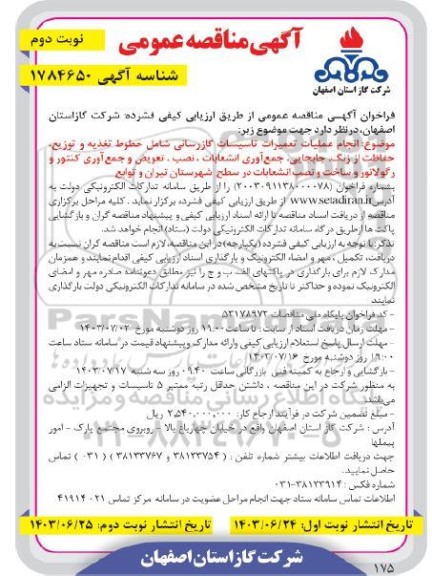 نوبت دوم
آگهی مناقصه عمومی
شناسه آگهی ۱۷۸۴۶۵۰
شرکت گاز استان اصفهان
فراخوان آگهی مناقصه عمومی از طریق ارزیابی کیفی فشرده: شرکت گاز استان
اصفهان، در نظر دارد جهت موضوع زیر:
موضوع: انجام عملیات تعمیرات تاسیسات گازرسانی شامل خطوط تغذیه و توزیع،
حفاظت از زنگ، جابجایی، جمع‌آوری انشعابات ، نصب ، تعویض و جمع‌آوری کنتور و
رگولاتور و ساخت و نصب انشعابات در سطح شهرستان تیران و توابع
بشماره فراخوان (۲۰۰۳۰۹۱۱۳۸۰۰۰۰۷۸) را از طریق سامانه تدارکات الکترونیکی دولت به
آدرس www.setadiran.ir از طریق ارزیابی کیفی فشرده برگزار نماید . کلیه مراحل برگزاری
مناقصه از دریافت اسناد مناقصه تا ارائه اسناد ارزیابی کیفی و پیشنهاد مناقصه گران و بازگشایی
پاکت ها از طریق درگاه سامانه تدارکات الکترونیکی دولت (ستاد) انجام خواهد شد.
تذکر: با توجه به ارزیابی کیفی فشرده (یکپارچه) در این مناقصه، لازم است مناقصه گران نسبت به
دریافت، تکمیل ، مهر و امضاء الکترونیک و بارگذاری اسناد ارزیابی کیفی اقدام نمایند و همزمان
مدارک لازم برای بارگذاری در پاکتهای الف، ب و ج را نیز مطابق دعوتنامه صادره مهر و امضای
الکترونیک نموده و حداکثر تا تاریخ مشخص شده در سامانه تدارکات الکترونیکی دولت بارگذاری
نمایند
- کد فراخوان پایگاه ملی مناقصات ۵۳۱۷۸۹۷۲
- مهلت زمان دریافت اسناد از سایت : تا ساعت ۱۹:۰۰ روز دوشنبه مورخ ۱۴۰۳/۰۷/۰۲
- مهلت ارسال پاسخ استعلام ارزیابی کیفی و ارائه مدارک و پیشنهاد قیمت در سامانه ستاد ساعت
۱۹:۰۰ روز دوشنبه مورخ ۱۴۰۳/۰۷/۱۶
- بازگشایی و ارجاع به کمیته فنی بازرگانی ساعت ۰۹:۴۰ روز سه شنبه ۱۴۰۳/۰۷/۱۷
به منظور شرکت در این مناقصه ، داشتن حداقل رتبه معتبر ۵ تاسیسات و تجهیزات الزامی
می‌باشد.
- مبلغ تضمین شرکت در فرآیند ارجاع کار: ۲,۵۴۰,۰۰۰,۰۰۰ ریال
آدرس : شرکت گاز استان اصفهان واقع در خیابان چهارباغ بالا - روبروی مجتمع پارک - امور
پیمانها
جهت دریافت اطلاعات بیشتر شماره تلفن : ( ۳۸۱۳۲۷۵۴ ) ( ۳۸۱۳۳۷۶۷ ) ( ۰۳۱ ) تماس
حاصل نمایید.
شماره فکس : ۰۳۱-۳۸۱۳۳۹۱۴
اطلاعات تماس سامانه ستاد جهت انجام مراحل عضویت در سامانه مرکز تماس ۰۲۱ ۴۱۹۱۴
تاریخ انتشار نوبت اول: ۱۴۰۳/۰۶/۲۴
تاریخ انتشار نوبت دوم: ۱۴۰۳/۰۶/۲۵
شرکت گاز استان اصفهان
۱۷۵
ParsNamadData
پایگاه اطلاع رسانی مناقصه و مزایده
۰۲۱-۸۸۳۴۹۶۷۰-۵